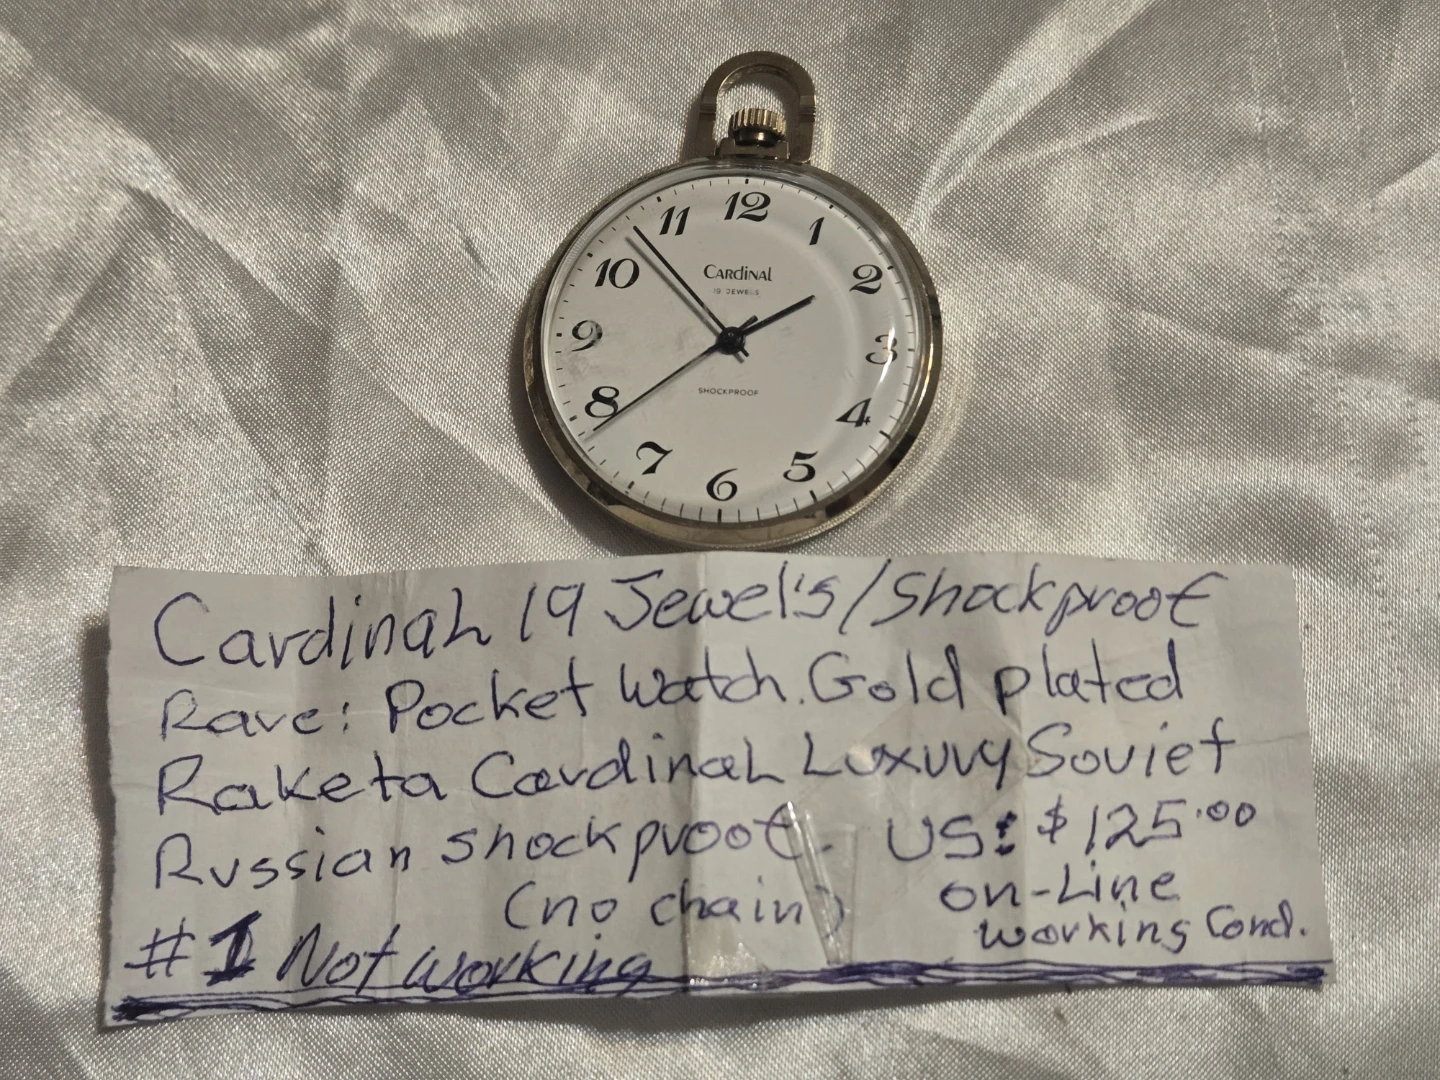 12
1
2
3
4
5
6
7
8
9
10
11
CARDINAL
19 JEWELS
SHOCKPROOF
Cardinal 19 Jewel's/Shockproof
Rare: Pocket Watch. Gold plated
Raketa Cardinal Luxury Soviet
Russian shockproof. US: $125.00
(no chain) on-Line
#1 Not working working Cond.